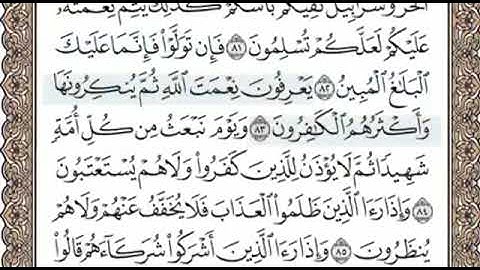 الحر وسرابيل تقيكم بأسكم كذلك يتم نعمته
عَلَيْكُمْ لَعَلَّكُمْ تُسْلِمُونَ ٨١ فَإِن تَوَلَّوْا۟ فَإِنَّمَا عَلَيْكَ
ٱلْبَلَٰغُ ٱلْمُبِينُ ٨٢ يَعْرِفُونَ نِعْمَتَ ٱللَّهِ ثُمَّ يُنكِرُونَهَا
وَأَكْثَرُهُمُ ٱلْكَٰفِرُونَ ٨٣ وَيَوْمَ نَبْعَثُ مِن كُلِّ أُمَّةٍ
شَهِيدًا ثُمَّ لَا يُؤْذَنُ لِلَّذِينَ كَفَرُوا۟ وَلَا هُمْ يُسْتَعْتَبُونَ
٨٤ وَإِذَا رَءَا ٱلَّذِينَ ظَلَمُوا۟ ٱلْعَذَابَ فَلَا يُخَفَّفُ عَنْهُمْ وَلَا هُمْ
يُنظَرُونَ ٨٥ وَإِذَا رَءَا ٱلَّذِينَ أَشْرَكُوا۟ شُرَكَآءَهُمْ قَالُوا۟